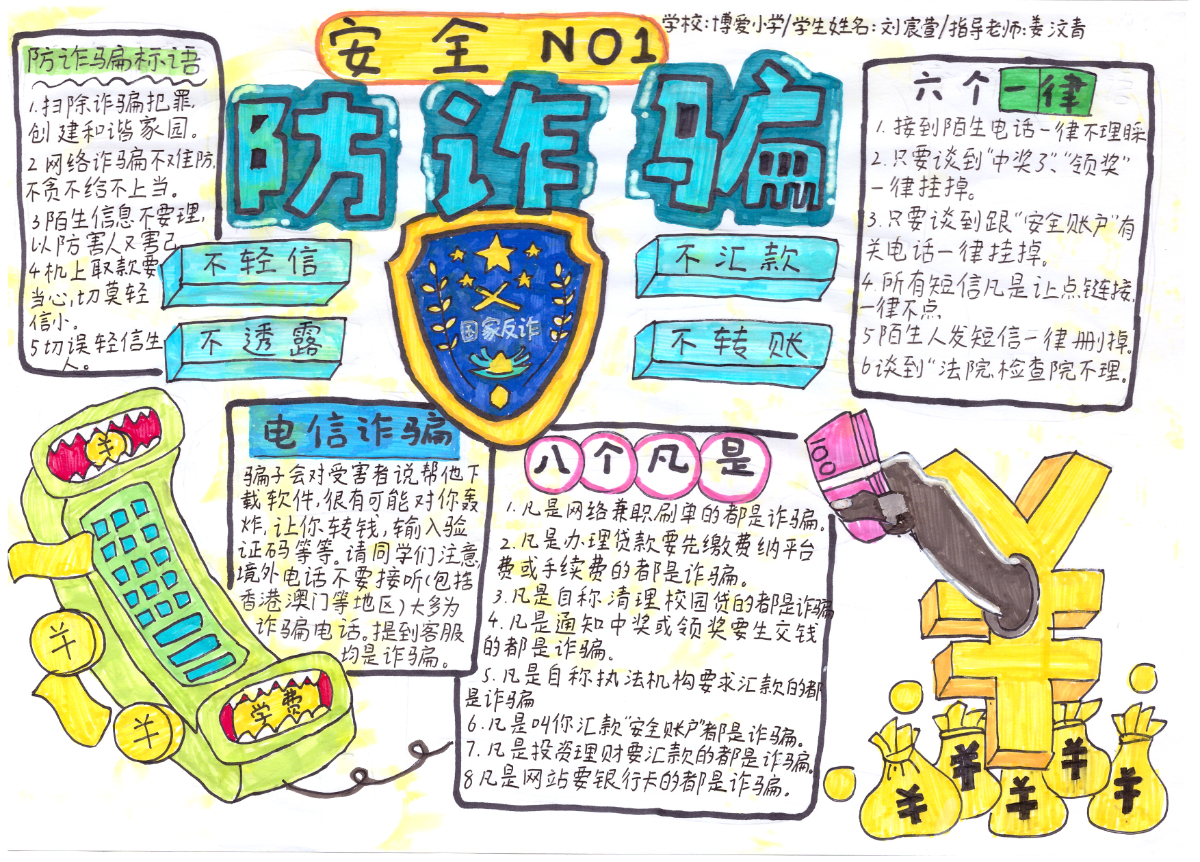 安全 NO1
学校:博爱小学/学生姓名:刘宸萱/指导老师:姜汶青
防诈骗
防诈骗标语
1.扫除诈骗犯罪,
创建和谐家园。
2网络诈骗不难防,
不贪不给不上当。
3陌生信息不要理,
以防害人又害己
4机上取款要
当心,切莫轻
信小。
5切误轻信生
人。
不轻信
不透露
不汇款
不转账
国家反诈
六个一律
1.接到陌生电话一律不理睬
2.只要谈到“中奖了”“领奖”
一律挂掉。
3.只要谈到跟“安全账户”有
关电话一律挂掉。
4.所有短信凡是让点链接,
一律不点
5陌生人发短信一律删掉。
6谈到“法院,检查院不理。
电信诈骗
骗子会对受害者说帮他下
载软件,很有可能对你轰
炸,让你转钱,输入验
证码等等。请同学们注意,
境外电话不要接听(包括
香港澳门等地区)大多为
诈骗电话。提到客服
均是诈骗。
八个凡是
1.凡是网络兼职刷单的都是诈骗。
2.凡是办理贷款要先缴费纳平台
费或手续费的都是诈骗。
3.凡是自称清理校园贷的都是诈骗
4.凡是通知中奖或领奖要生交钱
的都是诈骗。
5.凡是自称执法机构要求汇款的都
是诈骗
6.凡是叫你汇款“安全账户”都是诈骗。
7.凡是投资理财要汇款的都是诈骗。
8凡是网站要银行卡的都是诈骗。
¥
学费
¥
¥
100
¥
¥
¥
¥
¥